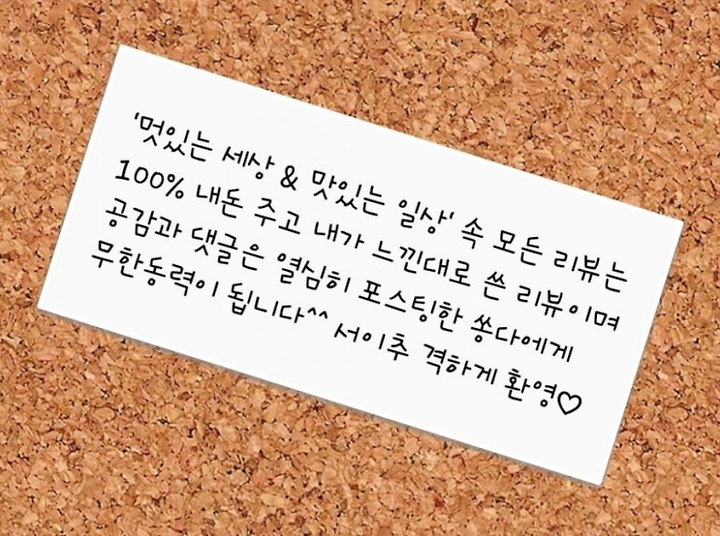 '멋있는 세상 & 맛있는 일상' 속 모든 리뷰는
100% 내돈 주고 내가 느낀대로 쓴 리뷰이며
공감과 댓글은 열심히 포스팅한 쏭다에게
무한동력이 됩니다^^ 서이추 격하게 환영♡